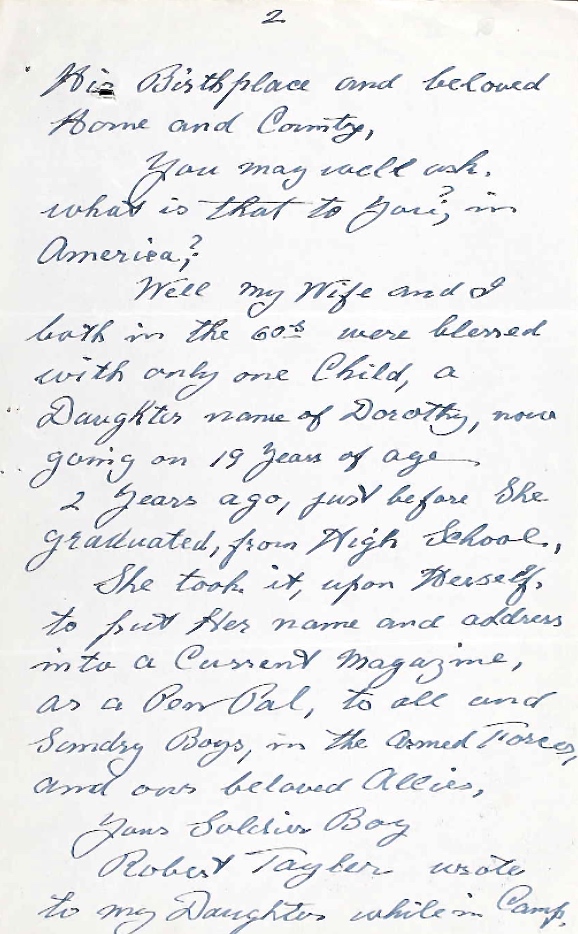 2
His Birthplace and beloved
Home and Country,
You may well ask.
what is that to You?, in
America?,
Well my Wife and I
both in the 60s were blessed
with only one Child, a
Daughter name of Dorothy, now
going on 19 Years of age
2 Years ago, just before She
graduated, from High School,
She took it, upon Herself,
to put Her name and address
into a Current Magazine,
as a Pen Pal, to all and
Sundry Boys, in the Armed Forces,
and our beloved Allies,
Your Soldier Boy
Robert Tayler wrote
to my Daughter while in Camp,